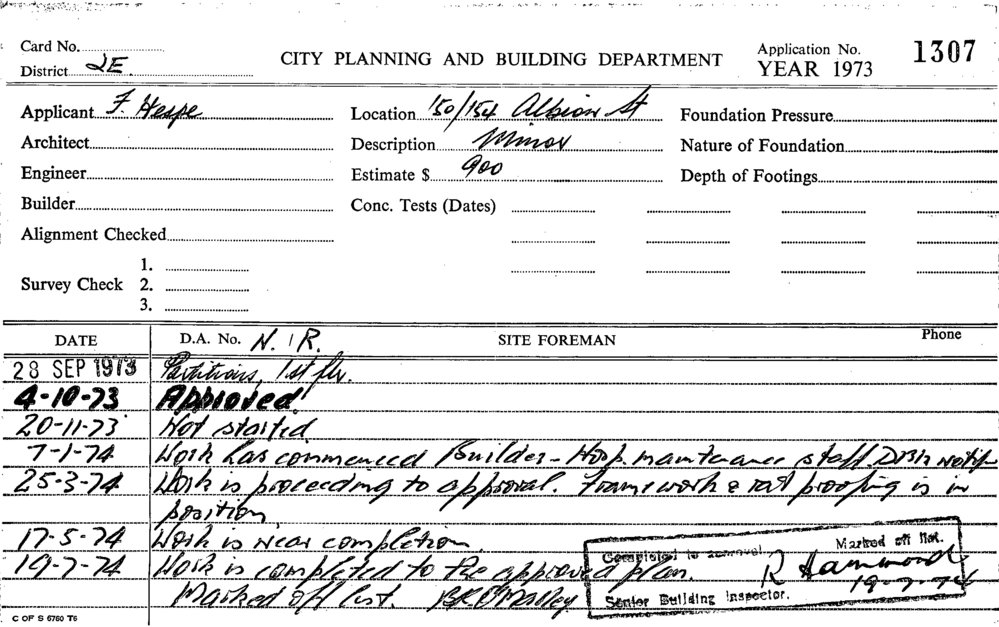 Card No.
District 2E
CITY PLANNING AND BUILDING DEPARTMENT
Application No. 1307
YEAR 1973
Applicant F. Hespe
Location 150/154 Albion St
Foundation Pressure
Architect
Description Minor
Nature of Foundation
Engineer
Estimate $ 900
Depth of Footings
Builder
Conc. Tests (Dates)
Alignment Checked
Survey Check
1.
2.
3.
DATE D.A. No. N.I.R. SITE FOREMAN Phone
28 SEP 1973 Partitions, 1st flr.
4-10-73 Approved
20-11-73 Not started
7-1-74 Work has commenced Builder - Hosp. maintenance staff
25-3-74 Work is proceeding to approval. Framework & rat proofing is in
position
17-5-74 Work is near completion
19-7-74 Work is completed to the approved plan.
Marked off list.
Completed to approval. Marked off list.
R Hammond
19-7-74
Senior Building Inspector.
C OF S 6760 T6